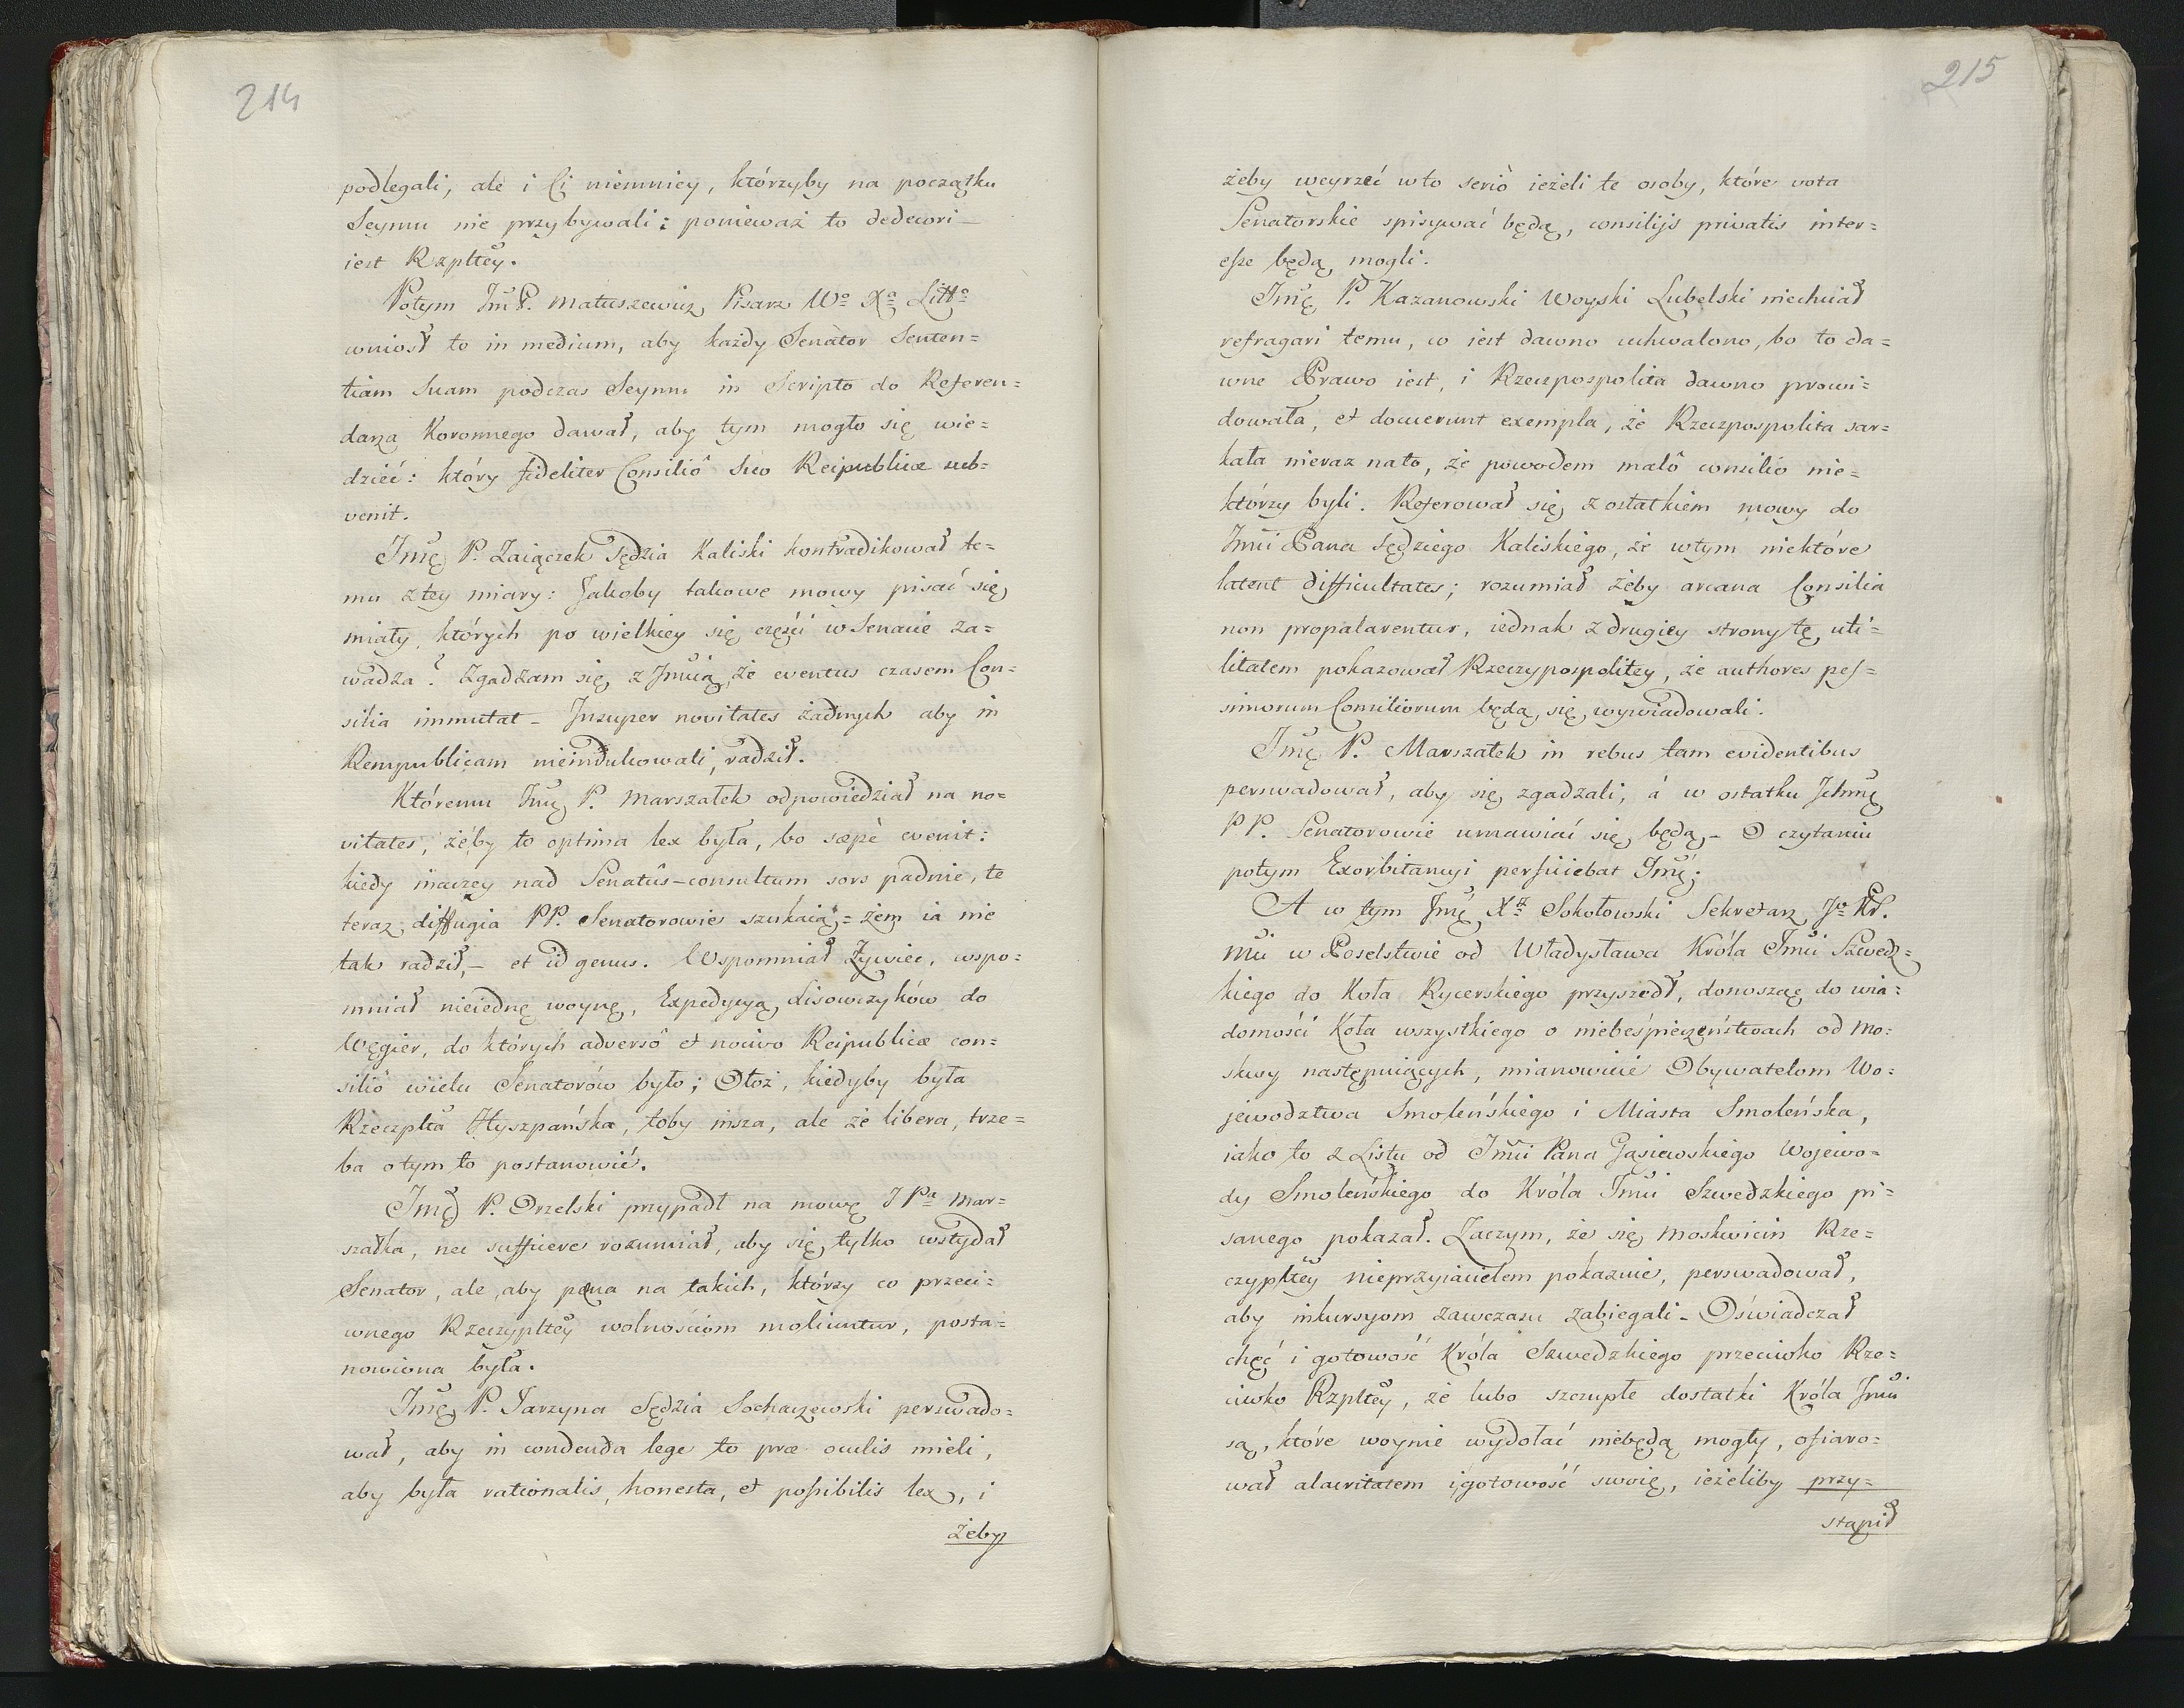 214
podlegali, ale i Ci niemniey, którzyby na początku
Seymu nie przybywali: ponieważ to dedecori
iest Rzpltey.
Potym Jmć P. Matuszewicz Pisarz Wo Xa Litto
wniosł to in medium, aby każdy Senator Senten=
tiam Suam podczas Seymu in Scripto do Referen=
darza Koronnego dawał, aby tym mogło się wie=
dzieć: który fideliter Consiliô Suo Reipublicæ sub=
venit.
Jmć P. Zaiączek Sędzia Kaliski kontradikował te=
mu z tey miary: Jakoby takowe mowy pisać się
miały, których po wielkiey się części w Senacie za=
wadza? Zgadzam się z Jmcią, że eventus czasem Con=
silia immutat – Insuper novitates żadnych aby in
Rempublicam nieindukowali, radził.
Któremu Jmć P. Marszałek odpowiedział na no=
vitates, żéby to optima lex była, bo sæpè evenit:
kiedy inaczey nad Senatûs-consultum sors padnie, te
teraz diffugia PP. Senatorowie szukaią = żem ia nie
tak radził, – et id genus. Wspomniał Żywiec, wspo=
mniał nieiednę woynę, Expedycyą Lisowczyków do
Węgier, do których adversô et nocivo Reipublicæ con=
siliô wielu Senatorów było; Otoż, kiedyby była
Rzeczplta Hyszpańska, toby insza, ale że libera, trze=
ba o tym to postanowić.
Jmć P. Orzelski przypadł na mowę J Pa Mar=
szałka, nec sufficere rozumiał, aby się tylko wstydał
Senator, ale aby pæna na takich, którzy co przeci=
wnego Rzeczypltey wolnościom moliuntur, posta=
nowiona była.
Jmć P. Jarzyna Sędzia Sochaczewski perswado=
wał, aby in condenda lege to præ oculis mieli,
aby była rationalis, honesta, et possibilis lex, i
żeby
215
żeby weyrzeć w to seriò ieżeli te osoby, które vota
Senatorskie spisywać będą, consilijs privatis inter=
esse będą mogli.
Jmć P. Kazanowski Woyski Lubelski niechciał
refragari temu, co iest dawno uchwalono, bo to da=
wne Prawo iest, i Rzeczpospolita dawno prowi=
dowała, et docuerunt exempla, że Rzeczpospolita sar=
kała nieraz na to, że powodem malô consiliô nie=
którzy byli. Referował się z ostatkiem mowy do
Jmci Pana Sędziego Kaliskiego, że w tym niektóre
latent difficultates; rozumiał żeby arcana Consilia
non propalarentur, iednak z drugiey strony tę uti=
litatem pokazował Rzeczypospolitey, że authores pes=
simorum Consiliorum będą się wywiadowali.
Jmć P. Marszałek in rebus tam evidentibus
perswadował, aby się zgadzali, á w ostatku Jchmć
PP. Senatorowie umawiać się będą – O czytaniu
potym Exorbitancyi perficiebat Jmć.
A w tym Jmć Xdz Sokołowski Sekretarz Jo Kr.
Mci w Poselstwie od Władysława Króla Jmci Szwedz=
kiego do Koła Rycerskiego przyszedł, donosząc do wia=
domości Koła wszystkiego o niebeśpieczeństwach od Mo=
skwy następuiących, mianowicie Obywatelom Wo=
jewodztwa Smoleńskiego i Miasta Smoleńska,
iako to z Listu od Jmci Pana Gąsiewskiego Wojewo=
dy Smoleńskiego do Króla Jmci Szwedzkiego pi=
sanego pokazał. Zaczym, że się Moskwicin Rze=
czypltey nieprzyiacielem pokazuie, perswadował,
aby inkursyom zawczasu zabiegali – Oświadczał
chęć i gotowość Króla Szwedzkiego przeciwko Rze=
ciwko Rzpltey, że lubo szczupłe dostatki Króla Jmci
są, które woynie wydołać niebędą mogły, ofiaro=
wał alacritatem i gotowość swoię, ieżeliby przy=
stąpił